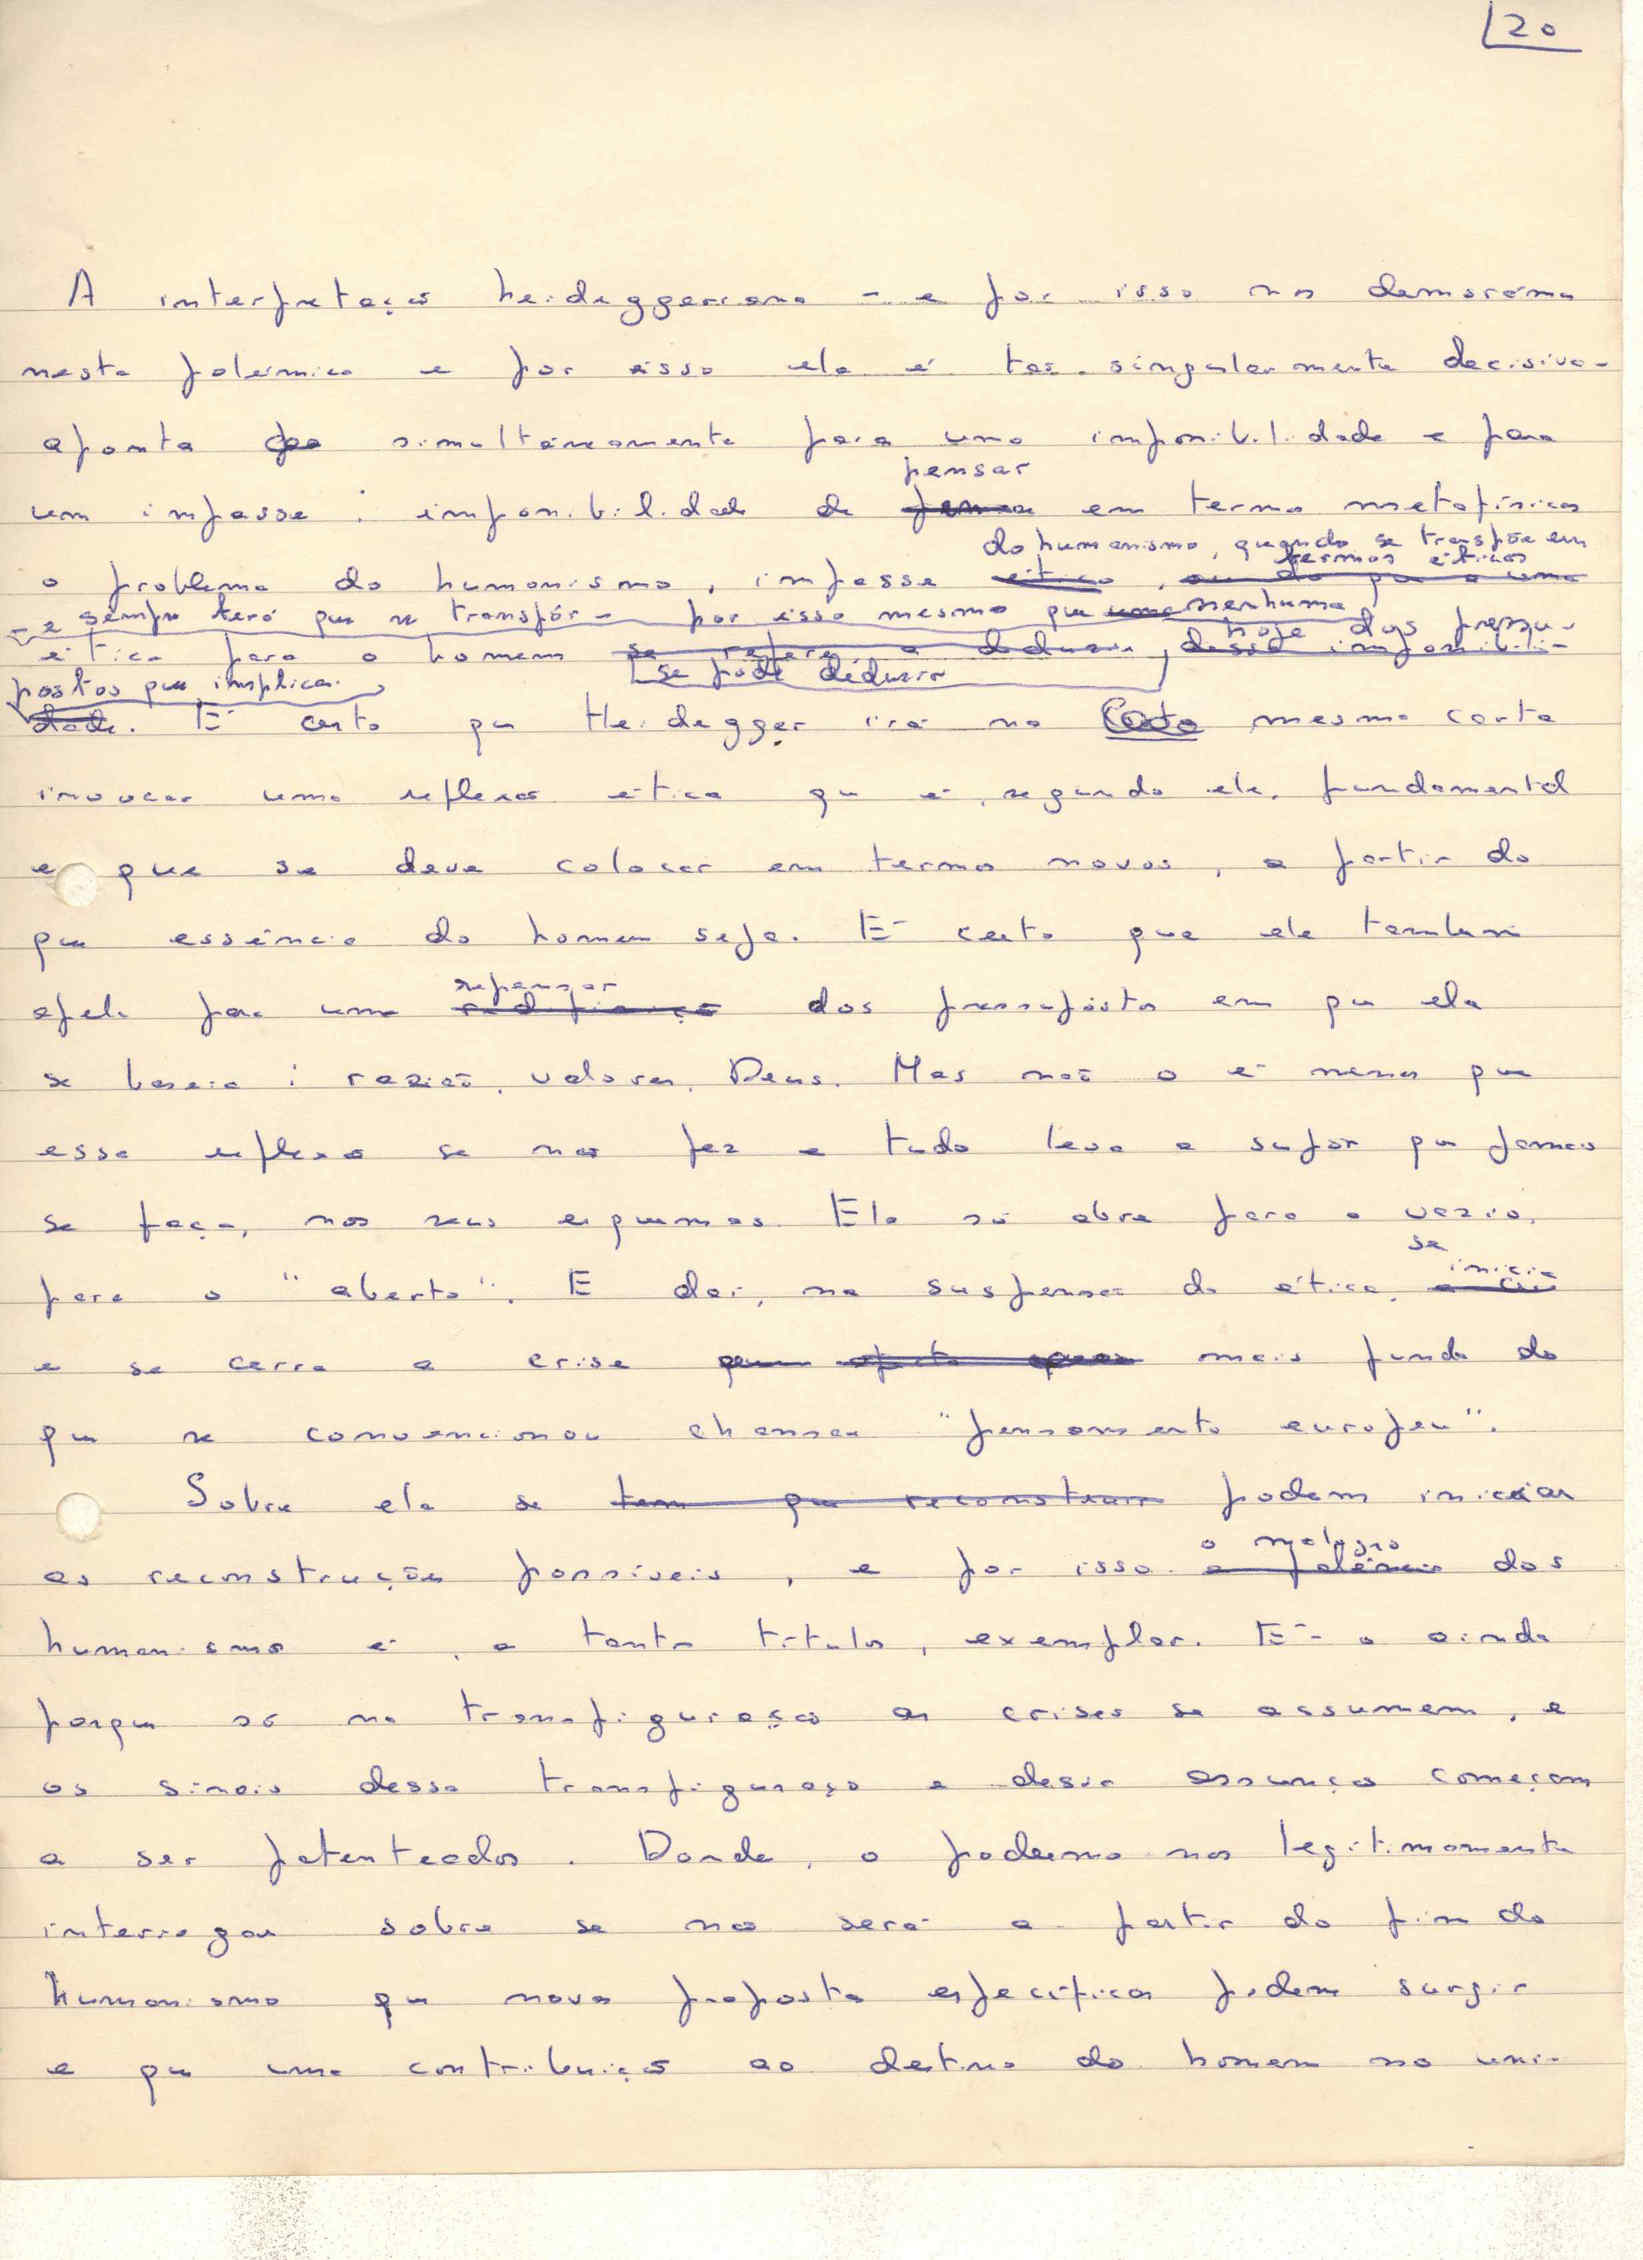 20
A interpretação heideggeriana - e por isso nos demorámos
nesta polémica e por isso ela é tão singularmente decisiva -
aponta simultaneamente para uma impossibilidade e para
pensar
um impasse: impossibilidade de em termos metafísicos
do humanismo, quando se transpõe em
termos éticos
o problema do humanismo, impasse ético, ou do que a uma
- e sempre terá que se transpôr - por isso mesmo que uma nenhuma
hoje dos pressu-
ética para o homem se refere a deduzir, dessa impossibili-
postos que implica. se pode deduzir
dade. É certo que Heidegger irá na Carta mesma carta
invocar uma reflexão ética que é, segundo ele, fundamental
e que se deve colocar em termos novos, a partir do
que essência do homem seja. É certo que ele também
repensar
apela para um dos pressupostos em que ela
se baseia: razão, valores, Deus. Mas não o é menos que
essa reflexão se não fez e tudo leva a supôr que jamais
se faça, nos seus esquemas. Ela só abre para o vazio,
se
para o "aberto". E daí, na suspensão da ética, inicia
e se cerra a crise mais funda do
que se convencionou chamar "pensamento europeu".
Sobre ela se tem que reconstruir podem iniciar
o malogro
as reconstruções possíveis, e por isso a polémica dos
humanismos é, a tantos títulos, exemplar. É-o ainda
porque só na transfiguração as crises se assumem, e
os sinais dessa transfiguração e dessa assunção começam
a ser patenteados. Donde, o podermo-nos legitimamente
interrogar sobre se não será a partir do fim do
humanismo que novas propostas específicas podem surgir
e que uma contribuição ao destino do homem no uni-